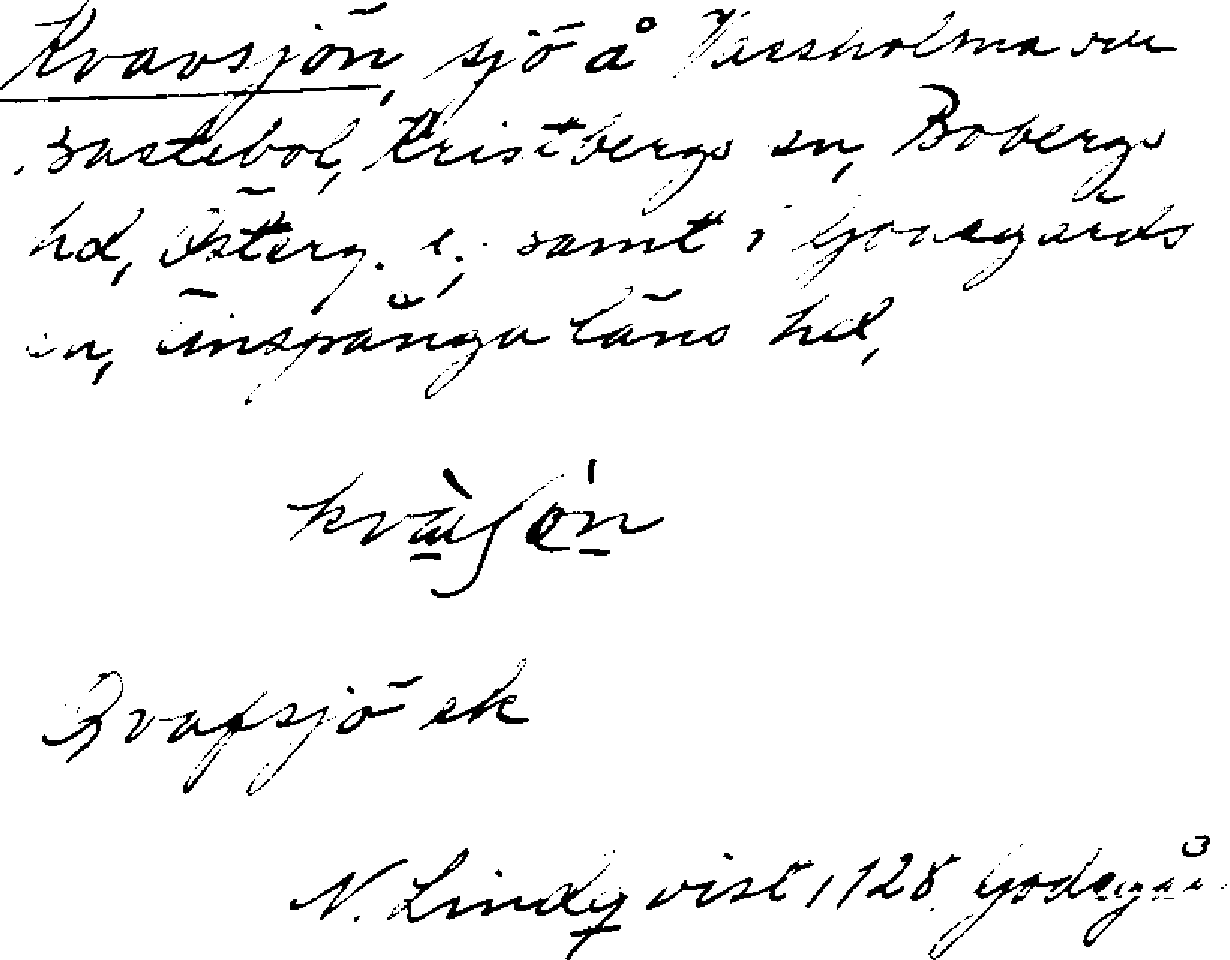 Kvavsjön, sjö å Vassholma
Bastebol, Kristbergs sn, Bobergs
hd, Österg. l.; samt i Godegårds
sn, Finspånga läns hd,
Qvafsjö ek
N. Lindqvist, 128. Godegår